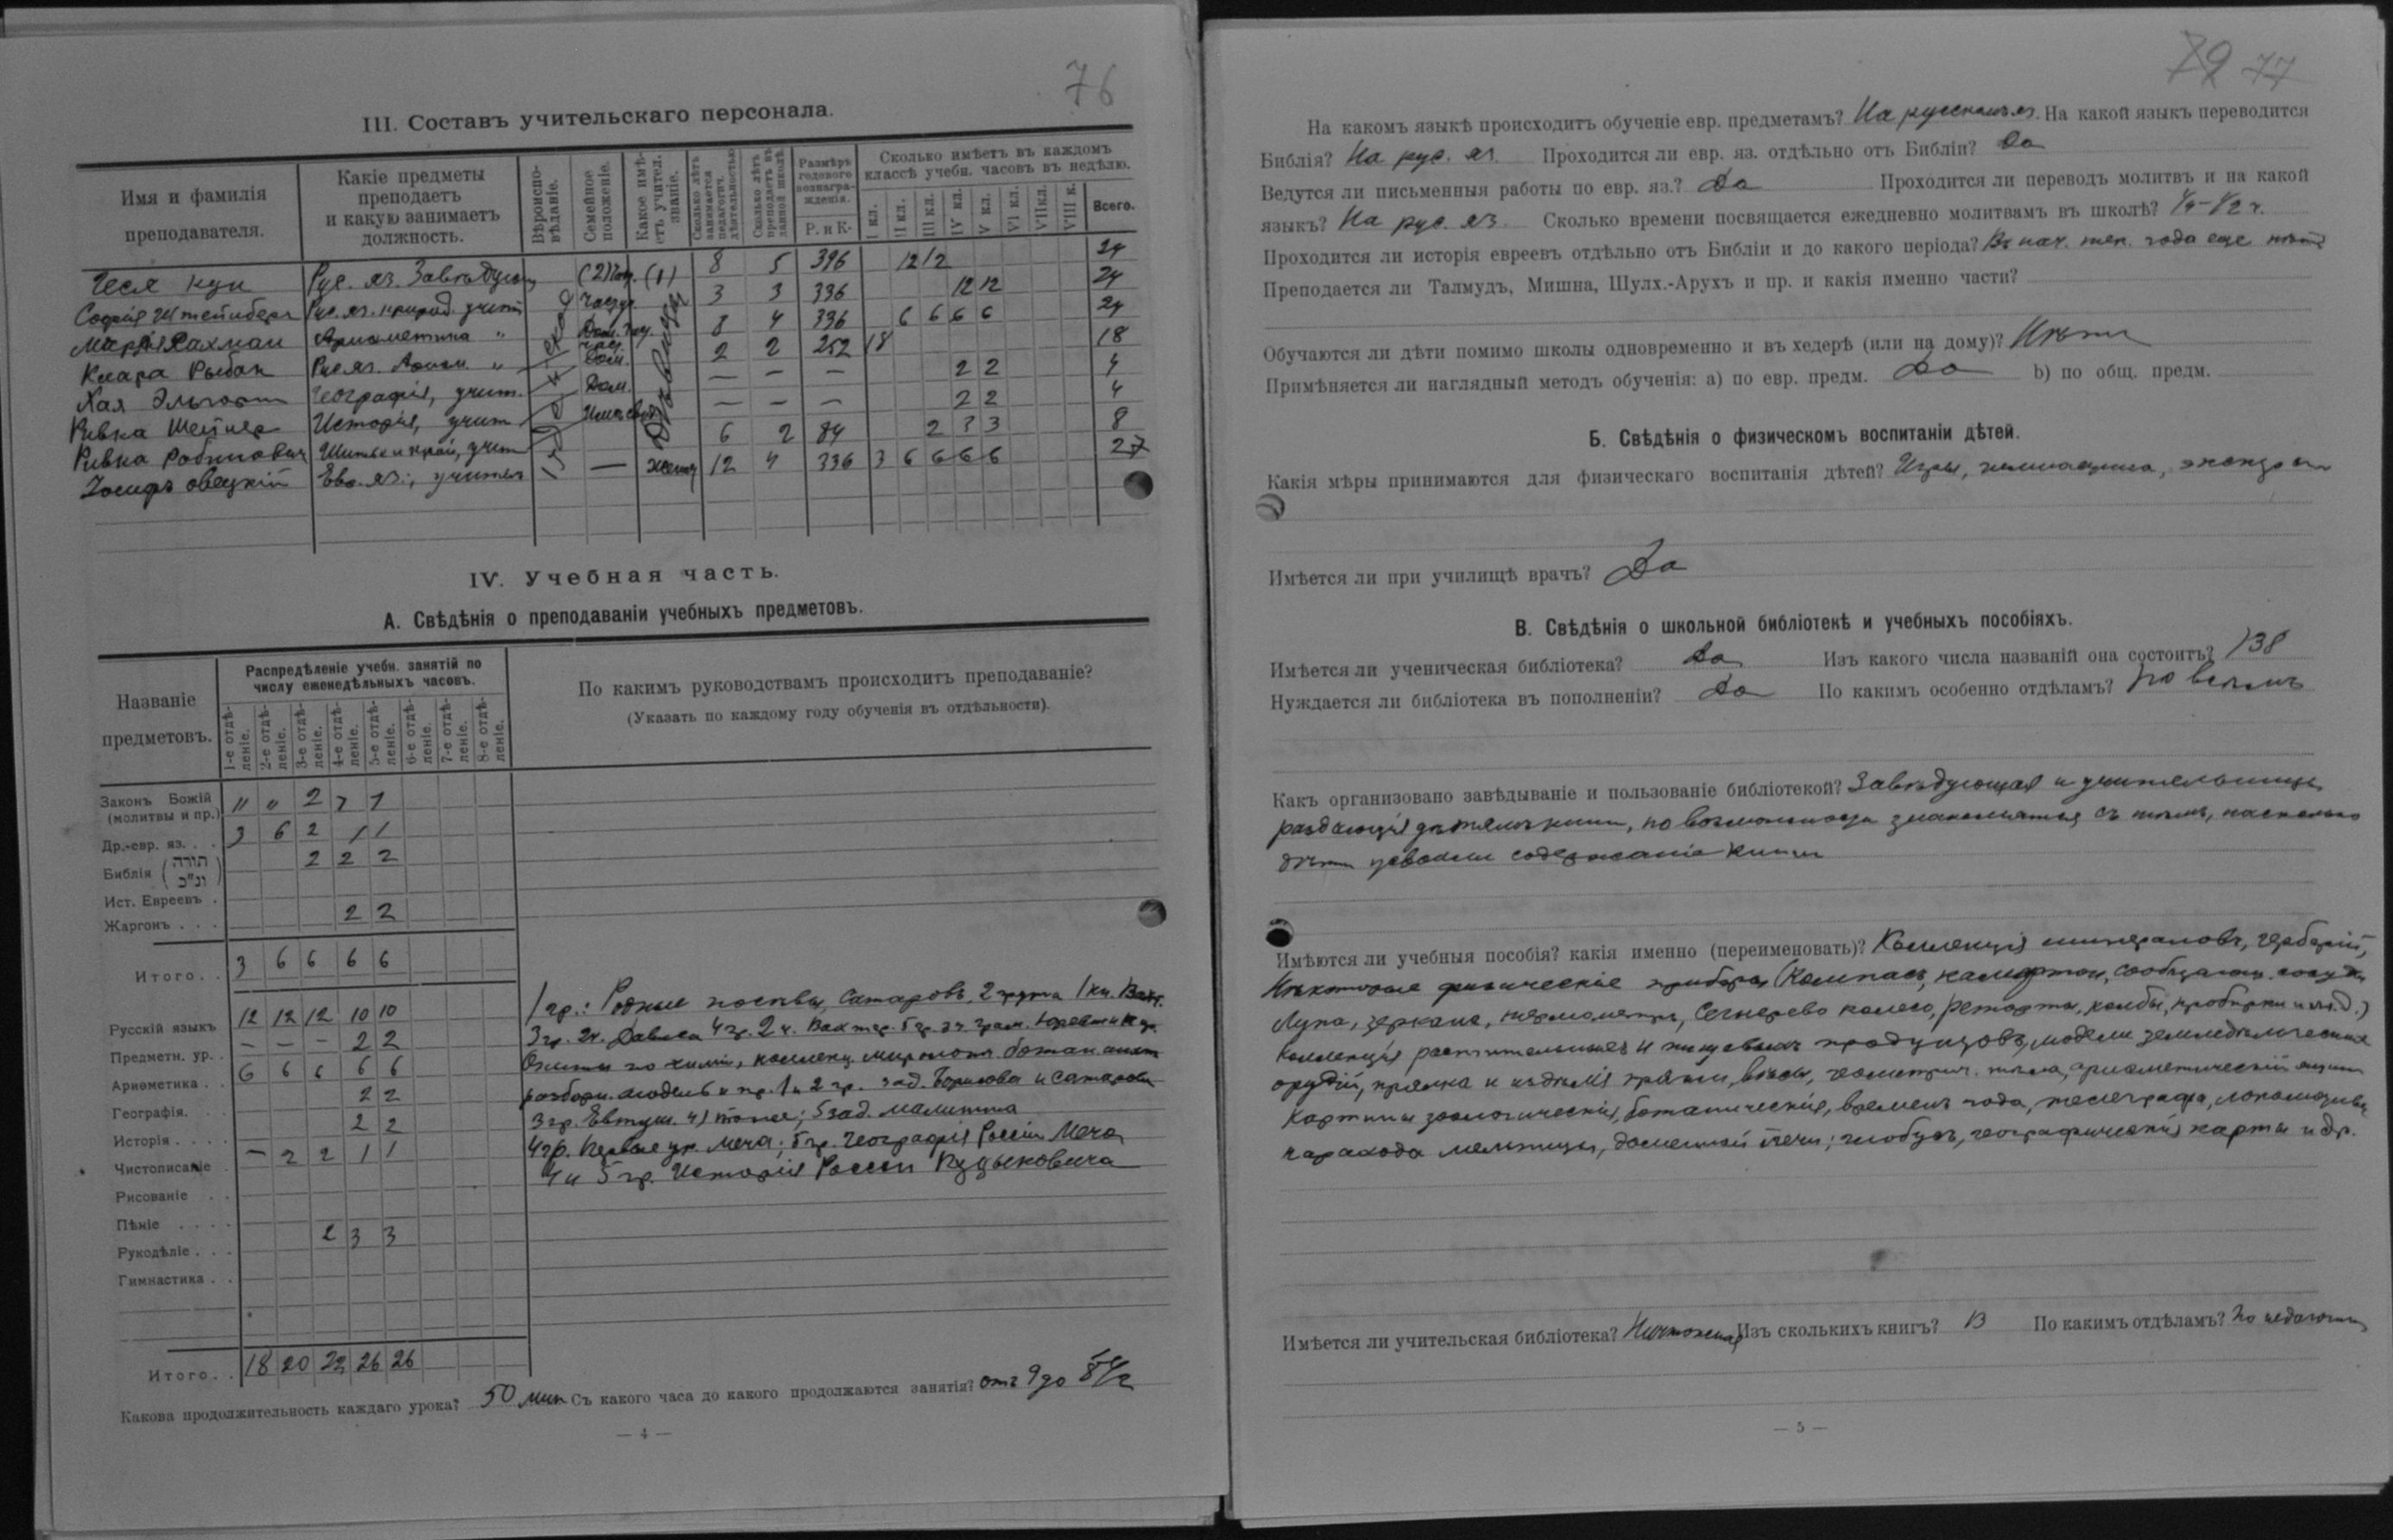 76
III. Составъ учительскаго персонала.
Имя и фамилія преподавателя.
Какіе предметы преподаетъ и какую занимаетъ должность.
Вѣроиспо-вѣданіе.
Семейное положеніе.
Какое имѣ-етъ учител. званіе.
Сколько лѣтъ занимается педагогич. дѣятельностью
Сколько лѣтъ преподаетъ въ данной школѣ.
Размѣръ годового вознагра-жденія.
Р. и К.
Сколько имѣетъ въ каждомъ классѣ учебн. часовъ въ недѣлю.
I кл. II кл. III кл. IV кл. V кл. VI кл. VII кл. VIII к. Всего.
Рус. яз. Завѣдующ (1) 8 5 396 12 12 24
Софія Штейнберг Рус. яз. природ. учит 3 3 336 12 12 24
Марія Рахман Арифметика " 8 4 336 6 6 6 6 24
Клара Рыбак Рус. яз. Арифм. " Дом. 2 2 252 18 18
Хая География, учит. Дом. — — — 2 2 4
Ривка Шейнер История, учит — — — 2 2 4
Ривка Рабинович Шитье и крой, учит 6 2 84 2 3 3 8
Іосифъ Овецкій Евр. яз., учитель — 12 4 336 3 6 6 6 6 27
IV. Учебная часть.
А. Свѣдѣнія о преподаваніи учебныхъ предметовъ.
Названіе предметовъ.
Распредѣленіе учебн. занятій по числу еженедѣльныхъ часовъ.
1-е отдѣ-леніе. 2-е отдѣ-леніе. 3-е отдѣ-леніе. 4-е отдѣ-леніе. 5-е отдѣ-леніе. 6-е отдѣ-леніе. 7-е отдѣ-леніе. 8-е отдѣ-леніе.
По какимъ руководствамъ происходитъ преподаваніе?
(Указать по каждому году обученія въ отдѣльности).
Законъ Божій (молитвы и пр.) " " 2 1 1
Др.-евр. яз. . . 3 6 2 1 1
Библія (תורה ונ"כ) 2 2 2
Ист. Евреевъ .
Жаргонъ . . . 2 2
Итого . . 3 6 6 6 6
Русскій языкъ 12 12 12 10 10
Предметн. ур. . — — — 2 2
Ариѳметика . . 6 6 6 6 6
Географія. . . 2 2
Исторія . . . . 2 2
Чистописаніе . — 2 2 1 1
Рисованіе . .
Пѣніе . . . .
Рукодѣліе . . . 2 3 3
Гимнастика . .
Итого . . 18 20 22 26 26
1 гр.: Родные посѣвы, Сатаровъ, 2 группа 1 кн. Вахт.
3 гр. 2 ч. 4 гр. 2 ч. Вахтер. 5 гр.
разборн. модель и пр. 1 и 2 гр. зад. Борисова и Сатарова
3 гр. Евтуш. 4) тоже; 5 зад. Малинина
4 гр. Первые ур. Меча; 5 гр. Географія Россіи Меча
4 и 5 гр. Исторія Россіи
Какова продолжительность каждаго урока? 50 мин Съ какого часа до какого продолжаются занятія? отъ 9 до
— 4 —
79 77
На какомъ языкѣ происходитъ обученіе евр. предметамъ? На русскомъ яз. На какой языкъ переводится
Библія? На рус. яз. Проходится ли евр. яз. отдѣльно отъ Библіи? Да
Ведутся ли письменныя работы по евр. яз.? Да Проходится ли переводъ молитвъ и на какой
языкъ? На рус. яз. Сколько времени посвящается ежедневно молитвамъ въ школѣ? 1/4-1/2 ч.
Проходится ли исторія евреевъ отдѣльно отъ Библіи и до какого періода? Въ нач. тек. года еще нѣтъ
Преподается ли Талмудъ, Мишна, Шулх.-Арухъ и пр. и какія именно части?
Обучаются ли дѣти помимо школы одновременно и въ хедерѣ (или на дому)? Нѣтъ
Примѣняется ли наглядный методъ обученія: а) по евр. предм. Да b) по общ. предм.
Б. Свѣдѣнія о физическомъ воспитаніи дѣтей.
Какія мѣры принимаются для физическаго воспитанія дѣтей? Игры, гимнастика,
Имѣется ли при училищѣ врачъ? Да
В. Свѣдѣнія о школьной библіотекѣ и учебныхъ пособіяхъ.
Имѣется ли ученическая библіотека? Да Изъ какого числа названій она состоитъ? 138
Нуждается ли библіотека въ пополненіи? Да По какимъ особенно отдѣламъ? По всѣмъ
Какъ организовано завѣдываніе и пользованіе библіотекой? Завѣдующая и учительницы
раздающія дѣтямъ книги, по возможности знакомятся съ тѣмъ, насколько
дѣти усвоили содержаніе книги
Имѣются ли учебныя пособія? какія именно (переименовать)? Коллекція минераловъ, гербарій,
Нѣкоторые физическіе приборы (Компасъ, камертон, сообщающ. сосуды
Лупа, зеркала, термометръ, Сегнерово колесо, реторта, колбы, пробирки и т.д.)
Коллекція растительныхъ и пищевыхъ продуктовъ, модели земледѣльческихъ
орудій, прялка и издѣлія пряжи, вѣсы, геометрич. тѣла, арифметическій ящик
Картины зоологическія, ботаническія, временъ года, телеграфа, локомотива
парохода мельницы, доменной печи; глобусъ, географическія карты и др.
Имѣется ли учительская библіотека? Ничтожная Изъ сколькихъ книгъ? 13 По какимъ отдѣламъ? По педагогикѣ
— 5 —